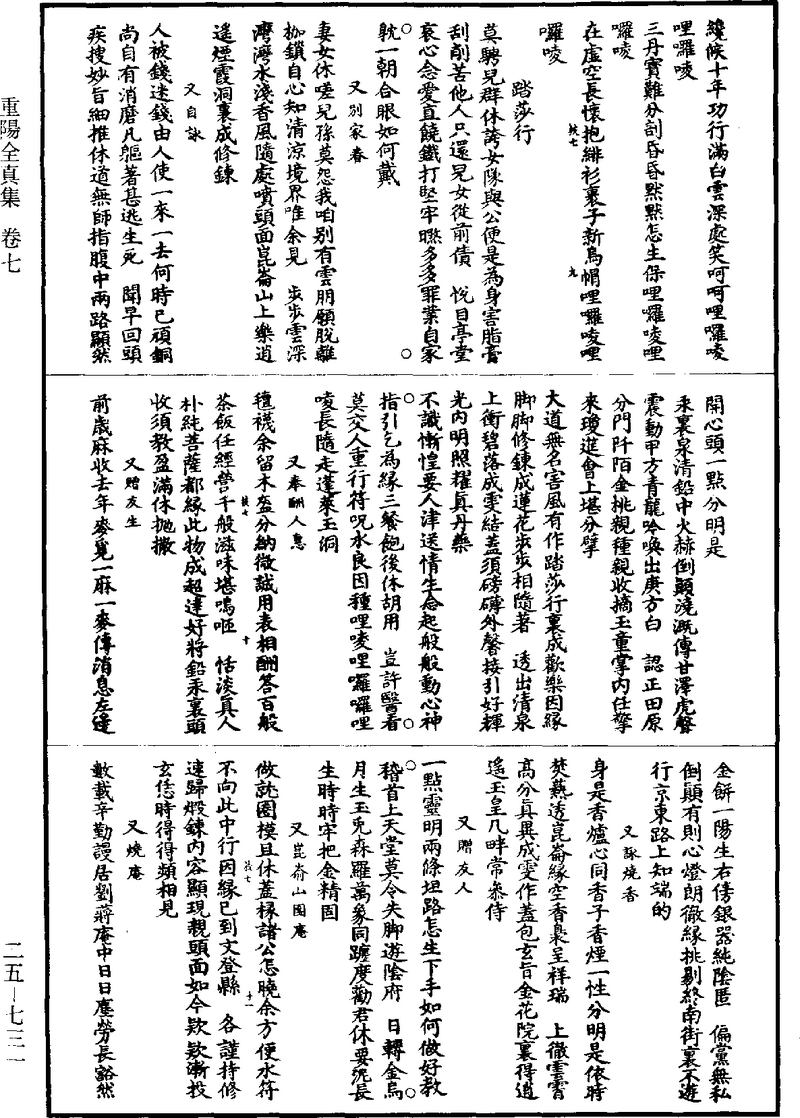 重陽全真集 卷七
纔候十年功行滿白雲深處笑呵呵哩囉唛
哩囉唛
三丹寶難分剖昏昏默默怎生保哩囉唛哩
囉唛
在虛空長懷抱緋衫裹子新烏帽哩囉唛哩
囉唛
踏莎行
莫騁兒群休誇女隊與公便是為身害脂膏
刮削苦他人只還兒女從前債 悅目亭堂
衷心念愛直饒鐵打堅牢𣊬多多罪業自家
躭一朝合眼如何戴
又別家眷
妻女休嗟兒孫莫怨我咱別有雲朋願脫離
枷鎖自心知清涼境界唯余見 步步雲深
灣灣水淺香風隨處噴頭面崑崙山上樂逍
遙煙霞洞裏成修鍊
又自詠
人被錢迷錢由人使一來一去何時已頑銅
尚自有消磨凡軀著甚逃生死 聞早回頭
疾搜妙旨細推休道無師指腹中兩路顯然
開心頭一點分明是
汞裏泉清鉛中火赫倒顛澆溉傳甘澤虎聲
震動甲方青龍吟喚出庚方白 認正田原
分門阡陌金挑親種親收摘玉童掌內任擎
來瓊進會上堪分擘
大道無名害風有作踏莎行裏成歡樂因緣
腳腳修鍊成蓮花步步相隨著 透出清泉
上衝碧落成雯結蓋須磅礡外馨接引好輝
光內明照耀真丹藥
不識慚惶要人津送情生念起般般動心神
指引乞為緣三餐飽後休胡用 豈許醫看
莫交人重行符呪水良因種哩唛哩囉囉哩
唛長隨走蓬萊玉洞
又奉酬人惠
氊襪余留木盔分納微誠用表相酬答百般
茶飯任經營千般滋味堪鳴咂 恬淡真人
朴純菩薩都緣此物成超達好將鉛汞裏頭
收須教盈滿休抛撒
又贈友生
前歲麻收去年麥覓一麻一麥傳消息左邊
金餅一陽生右傍銀器純陰匿 偏黨無私
倒顛有則心燈朗徹緣挑剔終南街裏不遊
行京東路上知端的
又詠燒香
身是香爐心同香子香煙一性分明是依時
焚爇透崑崙緣空香裊呈祥瑞 上徹雲霄
高分真異成雯作蓋包玄旨金花院裏得逍
遙玉皇几畔常參侍
又贈友人
一點靈明兩條坦路怎生下手如何做好教
稽首上天堂莫令失腳遊陰府 日轉金烏
月生玉兔森羅萬象同躔度勸君休要沉長
生時時牢把金精固
又崑崙山圓庵
做就圈模且休蓋椽諸公怎曉余方便水符
不向此中行因緣已到文登縣 各謹持修
速歸煅鍊內容顯現親頭面如今欵欵漸投
玄恁時得得頻相見
又燒庵
數載辛勤謾居劉蔣庵中日日塵勞長豁然
二五—七三一